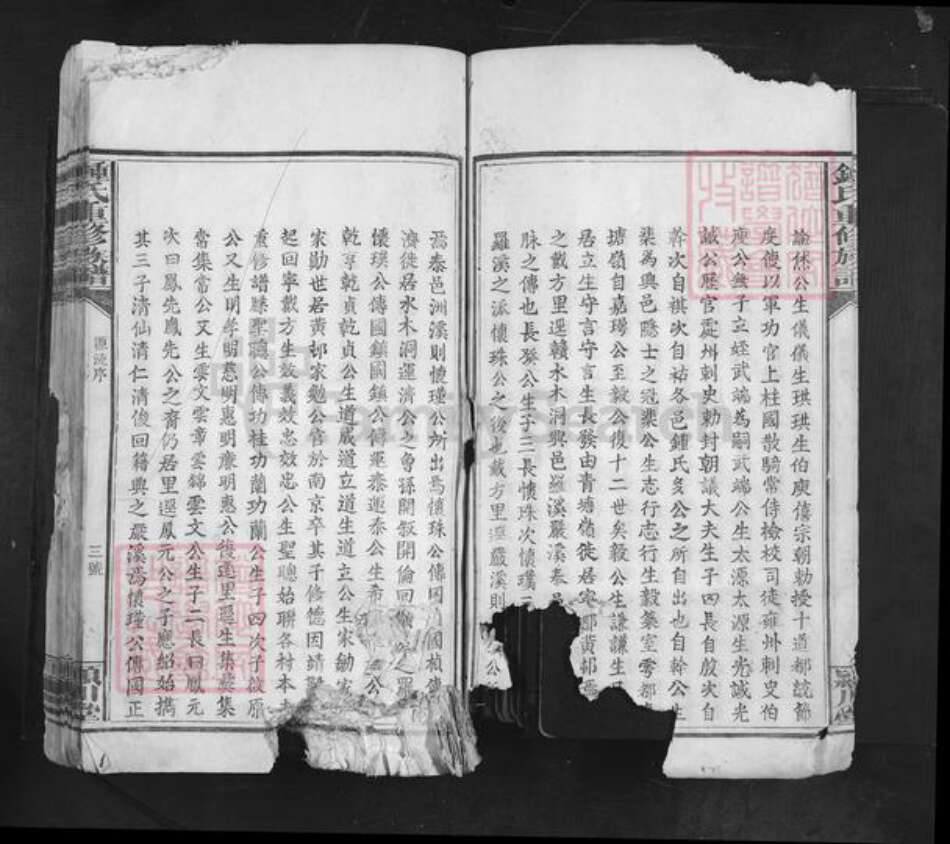 鍾氏重修族譜
諭休公生儀儀生珙珙生伯庾僖宗朝勅授十道都謊節
度使以軍功官上柱國散騎常侍檢校司徒雍州刺史伯
庾公無子立姪武端為嗣武端公生太源太源生光誠光
誠公歷官虔州刺史勅封朝議大夫生子四長自殷次自
幹次自祺次自祐各邑鍾氏多公之所自出也自幹公生
棐為興邑隱士之冠棐公生志行志行生毅築室雩都
塘嶺自嘉瑒公至毅公復十二世矣毅公生謙謙生
居立生守言守言生長發由青塘嶺徙居寧都黄邨
之戴方里逕贛水木洞興邑羅溪嚴溪泰邑
脉之傳也長發公生子三長懷珠次懷瑾三
羅溪之派懷珠公之後也戴方里逕嚴溪則 公
潁川堂
鍾氏重修族譜
源流序
三號
潁川堂
焉泰邑洲溪則懷瑾公所出焉懷珠公傳國 國楨
濟徙居水木洞運濟公之魯孫開叙開倫回 之羅
懷璞公傳國鎮國鎮公傳運泰運泰公生希 公
乾亨乾貞乾貞公生道成道立道生道立公生家勉家
家勤世居黄邨家勉公官於南京卒其子修德因請
起回寧戴方生效義效忠效忠公生聖聰始聯各村本
重修譜牒聖聰公傳功桂功蘭功蘭公生子四次子啟原
公又生明孝明慈明惠明應明惠公復逵里逕生集 集
當集當公又生雲文雲章雲錦雲文公生子二長曰鳳元
次曰鳳先鳳先公之裔仍居里逕鳳元公之子應紹始擕
其三子清仙清仁清俊回籍興之嚴溪焉懷瑾公傳國正
FamilySearch